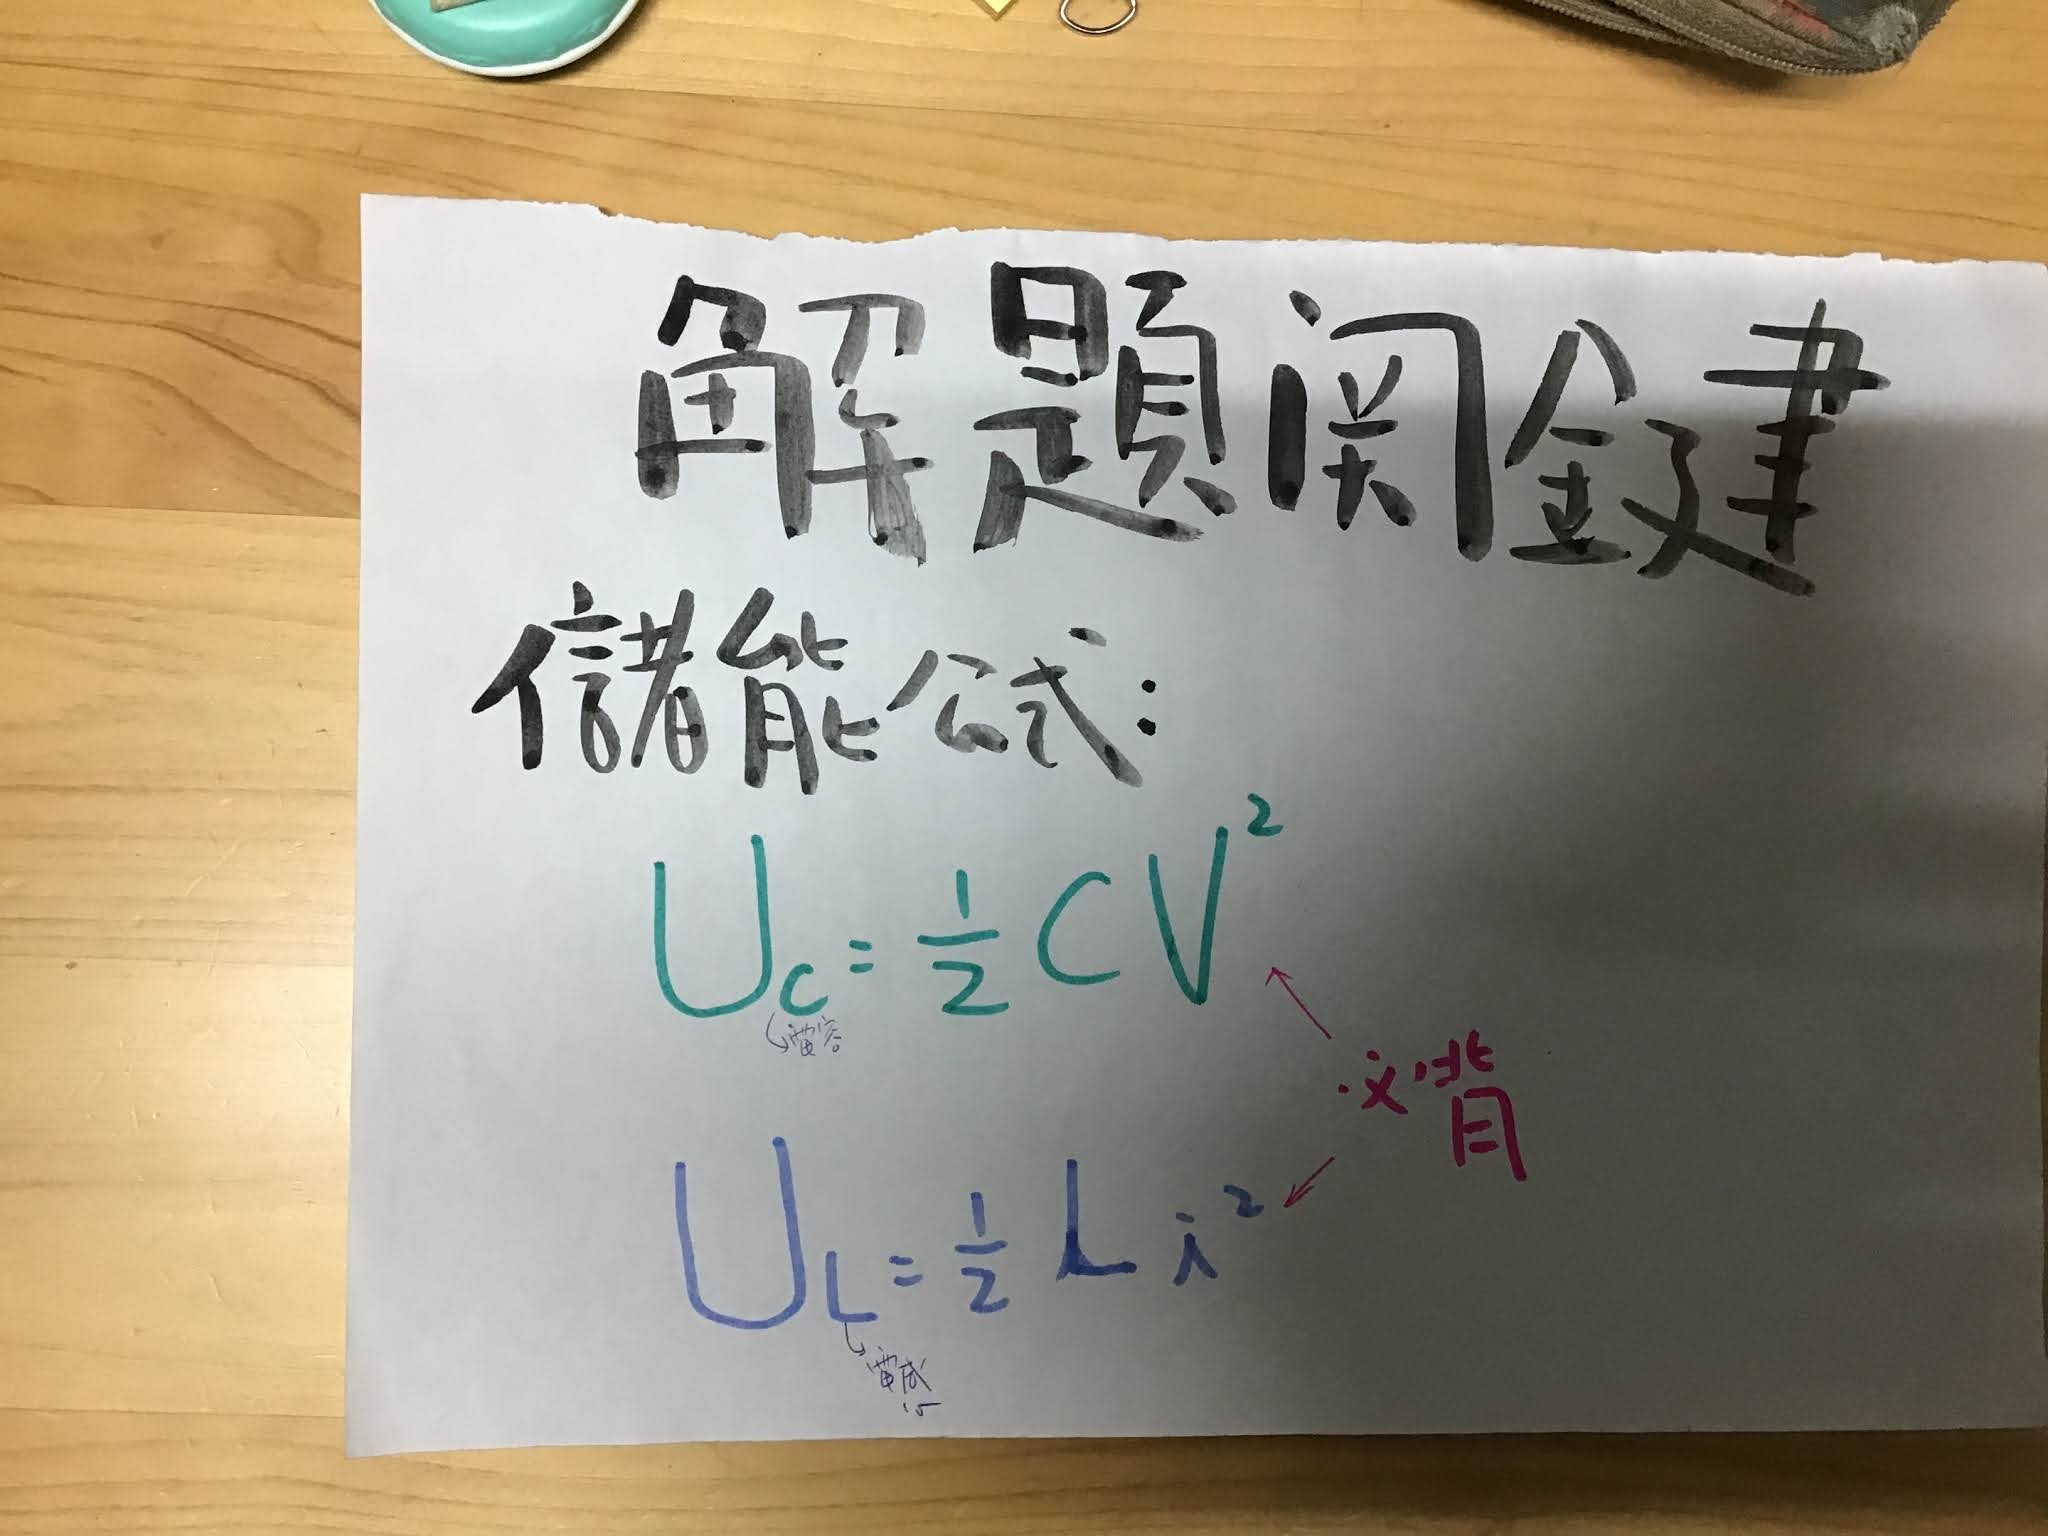 解題関鍵
儲能公式:
Uc = 1/2 CV²
電容
必背
UL = 1/2 Li²
電感